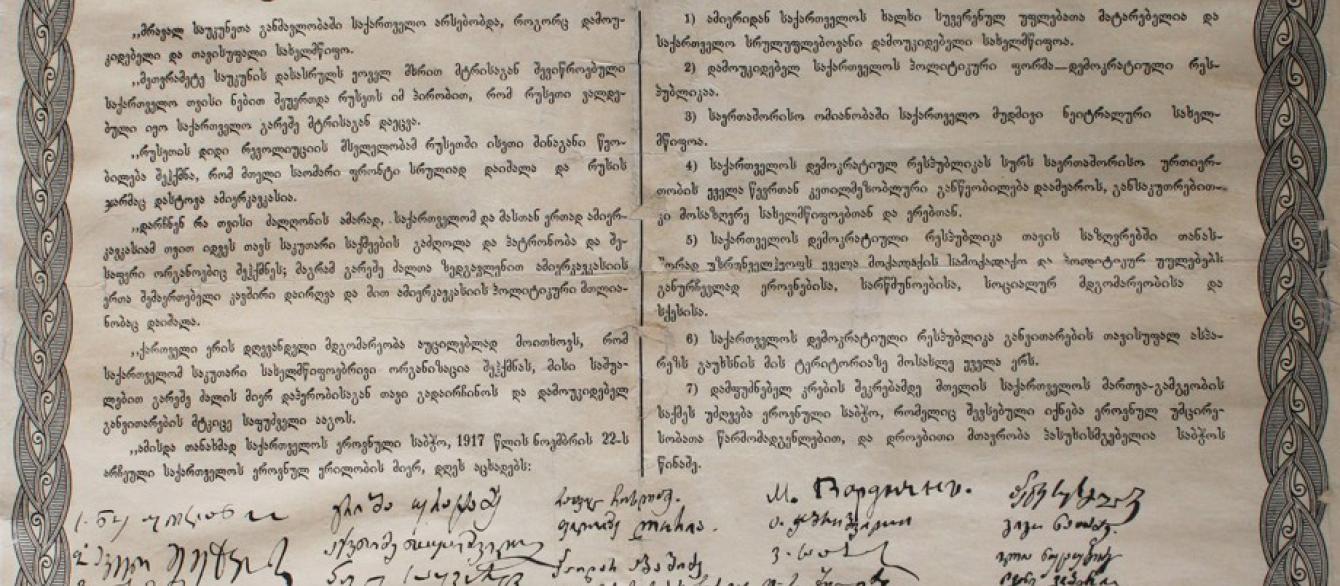 „მრავალ საუკუნეთა განმავლობაში საქართველო არსებობდა, როგორც დამოუ-
კიდებელი და თავისუფალი სახელმწიფო.
„მეთვრამეტე საუკუნის დასასრულს ყოველ მხრით მტრისაგან შევიწროებული
საქართველო თვისი ნებით შეუერთდა რუსეთს იმ პირობით, რომ რუსეთი ვალდე-
ბული იყო საქართველო გარეშე მტრისაგან დაეცვა.
„რუსეთის დიდი რევოლიუციის მსვლელობამ რუსეთში ისეთი შინაგანი წყო-
ბილება შეჰქმნა, რომ მთელი საომარი ფრონტი სრულიად დაიშალა და რუსის
ჯარმაც დასტოვა ამიერკავკასია.
„დარჩნენ რა თვისი ძალღონის ამარად, საქართველომ და მასთან ერთად ამიერ-
კავკასიამ თვით იდვეს თავს საკუთარი საქმეების გაძღოლა და პატრონობა და შე-
საფერი ორგანოებიც შეჰქმნეს; მაგრამ გარეშე ძალთა ზედგავლენით ამიერკავკასიის
ერთა შემაერთებელი კავშირი დაირღვა და მით ამიერკავკასიის პოლიტიკური მთლია-
ნობაც დაიშალა.
„ქართველი ერის დღევანდელი მდგომარეობა აუცილებლად მოითხოვს, რომ
საქართველომ საკუთარი სახელმწიფოებრივი ორგანიზაცია შეჰქმნას, მისი საშუა-
ლებით გარეშე ძალის მიერ დაპყრობისაგან თავი გადაირჩინოს და დამოუკიდებელ
განვითარების მტკიცე საფუძველი ააგოს.
„ამისდა თანახმად საქართველოს ეროვნული საბჭო, 1917 წლის ნოემბრის 22-ს
არჩეული საქართველოს ეროვნულ ყრილობის მიერ, დღეს აცხადებს:
1) ამიერიდან საქართველოს ხალხი სუვერენულ უფლებათა მატარებელია და
საქართველო სრულუფლებოვანი დამოუკიდებელი სახელმწიფოა.
2) დამოუკიდებელ საქართველოს პოლიტიკური ფორმა—დემოკრატიული რეს-
პუბლიკაა.
3) საერთაშორისო ომიანობაში საქართველო მუდმივი ნეიტრალური სახელ-
მწიფოა.
4) საქართველოს დემოკრატიულ რესპუბლიკას სურს საერთაშორისო ურთიერ-
თობის ყველა წევრთან კეთილმეზობლური განწყობილება დაამყაროს, განსაკუთრებით-
კი მოსაზღვრე სახელმწიფოებთან და ერებთან.
5) საქართველოს დემოკრატიული რესპუბლიკა თავის საზღვრებში თანას-
წორად უზრუნველჰყოფს ყველა მოქალაქის სამოქალაქო და პოლიტიკურ უფლებებს
განურჩევლად ეროვნებისა, სარწმუნოებისა, სოციალურ მდგომარეობისა და
სქესისა.
6) საქართველოს დემოკრატიული რესპუბლიკა განვითარების თავისუფალ ასპა-
რეზს გაუხსნის მის ტერიტორიაზე მოსახლე ყველა ერს.
7) დამფუძნებელ კრების შეკრებამდე მთელის საქართველოს მართვა-გამგეობის
საქმეს უძღვება ეროვნული საბჭო, რომელიც შევსებული იქნება ეროვნულ უმცირე-
სობათა წარმომადგენლებით, და დროებითი მთავრობა პასუხისმგებელია საბჭოს
წინაშე.